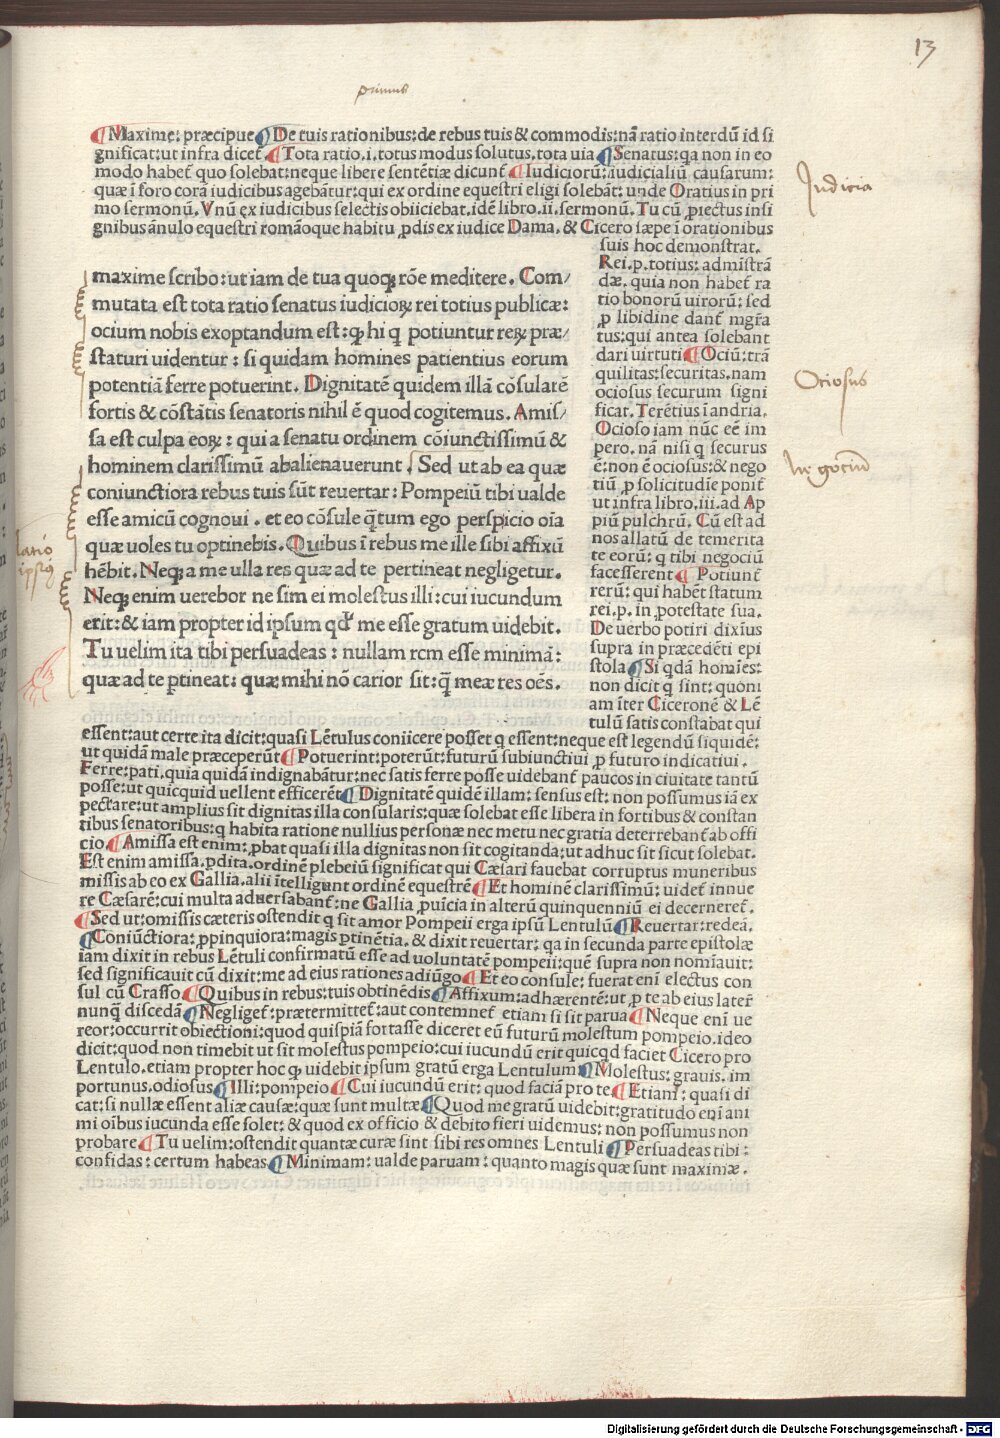 13
primus
¶ Maxime: præcipue ¶ De tuis rationibus: de rebus tuis & commodis: nã ratio interdũ id si
gnificat: ut infra dicet̃ ¶ Tota ratio .i. totus modus solutus, tota uia ¶ Senatus: qa non in eo
modo habet̃ quo solebat: neque libere sentẽtiæ dicunt̃ ¶ Iudiciorũ: iudicialiũ causarum:
quæ ĩ foro corã iudicibus agebãtur: qui ex ordine equestri eligi solebãt: unde Oratius in pri
mo sermonũ. Vnũ ex iudicibus selectis obiiciebat. idẽ libro .ii. sermonũ. Tu cũ ꝓiectus insi
gnibus ãnulo equestri romãoque habitu ꝓdis ex iudice Dama. & Cicero sæpe ĩ orationibus
suis hoc demonstrat.
Iudicia
maxime scribo: ut iam de tua quoqꝫ rõe meditere. Com/
mutata est tota ratio senatus iudicioꝝ rei totius publicæ:
ocium nobis exoptandum est: ꝙ hi q potiuntur reꝝ præ/
staturi uidentur: si quidam homines patientius eorum
potentiã ferre potuerint. Dignitatẽ quidem illã cõsularẽ
fortis & cõstãtis senatoris nihil ẽ quod cogitemus. Amis/
sa est culpa eoꝝ: qui a senatu ordinem cõiunctissimũ &
hominem clarissimũ abalienauerunt. Sed ut ab ea quæ
coniunctiora rebus tuis sũt reuertar: Pompeiũ tibi ualde
esse amicũ cognoui. et eo cõsule q̃tum ego perspicio oĩa
quæ uoles tu optinebis. Quibus ĩ rebus me ille sibi affixũ
hẽbit. Neqꝫ a me ulla res quæ ad te pertineat negligetur.
Neqꝫ enim uerebor ne sim ei molestus illi: cui iucundum
erit: & iam propter id ipsum qđ me esse gratum uidebit.
Tu uelim ita tibi persuadeas: nullam rem esse minimã:
quæ ad te ꝑtineat: quæ mihi nõ carior sit: q̃ meæ res oẽs.
Rei .p. totius: admĩstrã
dæ. quia non habet̃ ra
tio bonorũ uirorũ: sed
ꝓ libidine dant̃ mgr̃a
tus: qui antea solebant
dari uirtuti ¶ Ociũ: trã
quilitas: securitas. nam
ociosus securum signi
ficat. Terẽtius ĩ andria.
Ocioso iam nũc eẽ im
pero. nã nisi q securus
ẽ: non ẽ ociosus: & nego
tiũ ꝓ solicitudĩe ponit̃
ut infra libro .iii. ad Ap
piũ pulchrũ. Cũ est ad
nos allatũ de temerita
te eorũ: q tibi negociũ
facesserent ¶ Potiunt̃
rerũ: qui habẽt statum
rei .p. in potestate sua.
De uerbo potiri dixĩus
supra in præcedẽti epi
stola ¶ Si qdã homĩes:
non dicit q sint: quoni
am iter Ciceronẽ & Lẽ
tulũ satis constabat qui
Ociosus
Negotiũ
essent: aut certe ita dicit: quasi Lẽtulus coniicere posset q essent: neque est legendũ siquidẽ:
ut quidã male præceperũt ¶ Potuerint: poterũt: futurũ subiunctiui ꝓ futuro indicatiui.
Ferre: pati. quia quidã indignabãtur: nec satis ferre posse uidebant̃ paucos in ciuitate tantũ
posse: ut quicquid uellent efficerẽt ¶ Dignitatẽ quidẽ illam: sensus est: non possumus iã ex
pectare: ut amplius sit dignitas illa consularis: quæ solebat esse libera in fortibus & constan
tibus senatoribus: q habita ratione nullius personæ nec metu nec gratia deterrebant̃ ab offi
cio. ¶ Amissa est enim: ꝓbat quasi illa dignitas non sit cogitanda: ut adhuc sit sicut solebat.
Est enim amissa. ꝑdita. ordinẽ plebeiũ significat qui Cæsari fauebat corruptus muneribus
missis ab eo ex Gallia. alii ĩtelligunt ordinẽ equestrẽ ¶ Et hominẽ clarissimũ: uidet̃ innue
re Cæsarẽ: cui multa aduersabant̃: ne Gallia ꝓuĩcia in alterũ quinquenniũ ei decerneret̃.
¶ Sed ut: omissis cæteris ostendit q sit amor Pompeii erga ipsũ Lentulũ ¶ Reuertar: redeã.
¶ Coniũctiora: ꝓpinquiora: magis ꝑtinẽtia. & dixit reuertar: qa in secunda parte epistolæ
iam dixit in rebus Lẽtuli confirmatũ esse ad uoluntatẽ pompeii: quẽ supra non nomĩauit:
sed significauit cũ dixit: me ad eius rationes adiũgo ¶ Et eo consule: fuerat enĩ electus con
sul cũ Crasso ¶ Quibus in rebus: tuis obtinẽdis ¶ Affixum: adhærentẽ: ut ꝓ te ab eius later̃
nunq̃ discedã ¶ Negliget̃: prætermittet̃: aut contemnet̃ etiam si sit parua ¶ Neque enĩ ue
reor: occurrit obiectioni: quod quispiã fortasse diceret eũ futurũ molestum pompeio. ideo
dicit: quod non timebit ut sit molestus pompeio: cui iucundũ erit quicqd faciet Cicero pro
Lentulo. etiam propter hoc ꝙ uidebit ipsum gratũ erga Lentulum ¶ Molestus: grauis. im
portunus. odiosus ¶ Illi: pompeio ¶ Cui iucundũ erit: quod faciã pro te ¶ Etiam: quasi di
cat: si nullæ essent aliæ causæ: quæ sunt multæ ¶ Quod me gratũ uidebit: gratitudo enĩ ani
mi oĩbus iucunda esse solet: & quod ex officio & debito fieri uidemus: non possumus non
probare ¶ Tu uelim: ostendit quantæ curæ sint sibi res omnes Lentuli ¶ Persuadeas tibi:
confidas: certum habeas ¶ Minimam: ualde paruam: quanto magis quæ sunt maximæ.
Digitalisierung gefördert durch die Deutsche Forschungsgemeinschaft - DFG